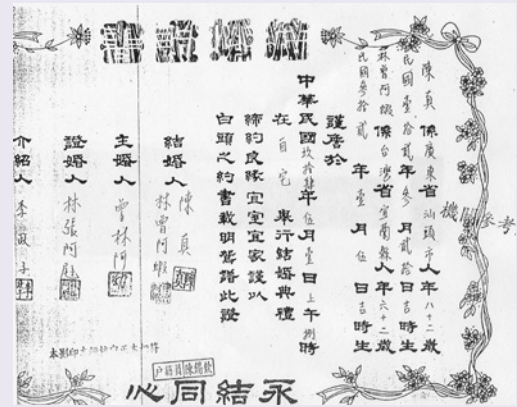 永結同心
陳真 係廣東省汕頭市人年八十二歲
民國壹拾貳年參月貳拾日吉時生
林曾阿蝦 係台灣省宜蘭縣人年六十二歲
民國參拾貳年壹月伍日吉時生
謹詹於
中華民國玖拾肆年伍月壹日上午捌時
在自宅舉行結婚典禮
締約良緣宜室宜家謹以
白頭之約書載明鴛譜此證
結婚人 陳真
林曾阿蝦
主婚人 林阿
證婚人 林張阿
介紹人 李
機關參考
戶籍員陳錫欽